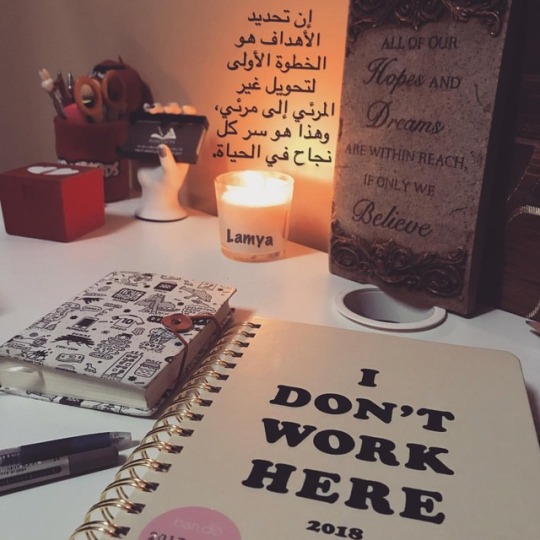 إن تحديد
الأهداف هو
الخطوة الأولى
لتحويل غير
المرئي إلى مرئي،
وهذا هو سر كل
نجاح في الحياة.
ALL OF OUR
Hopes AND
Dreams
ARE WITHIN REACH,
IF ONLY WE
Believe
Lamya
I
DON'T
WORK
HERE
2018
ban.do